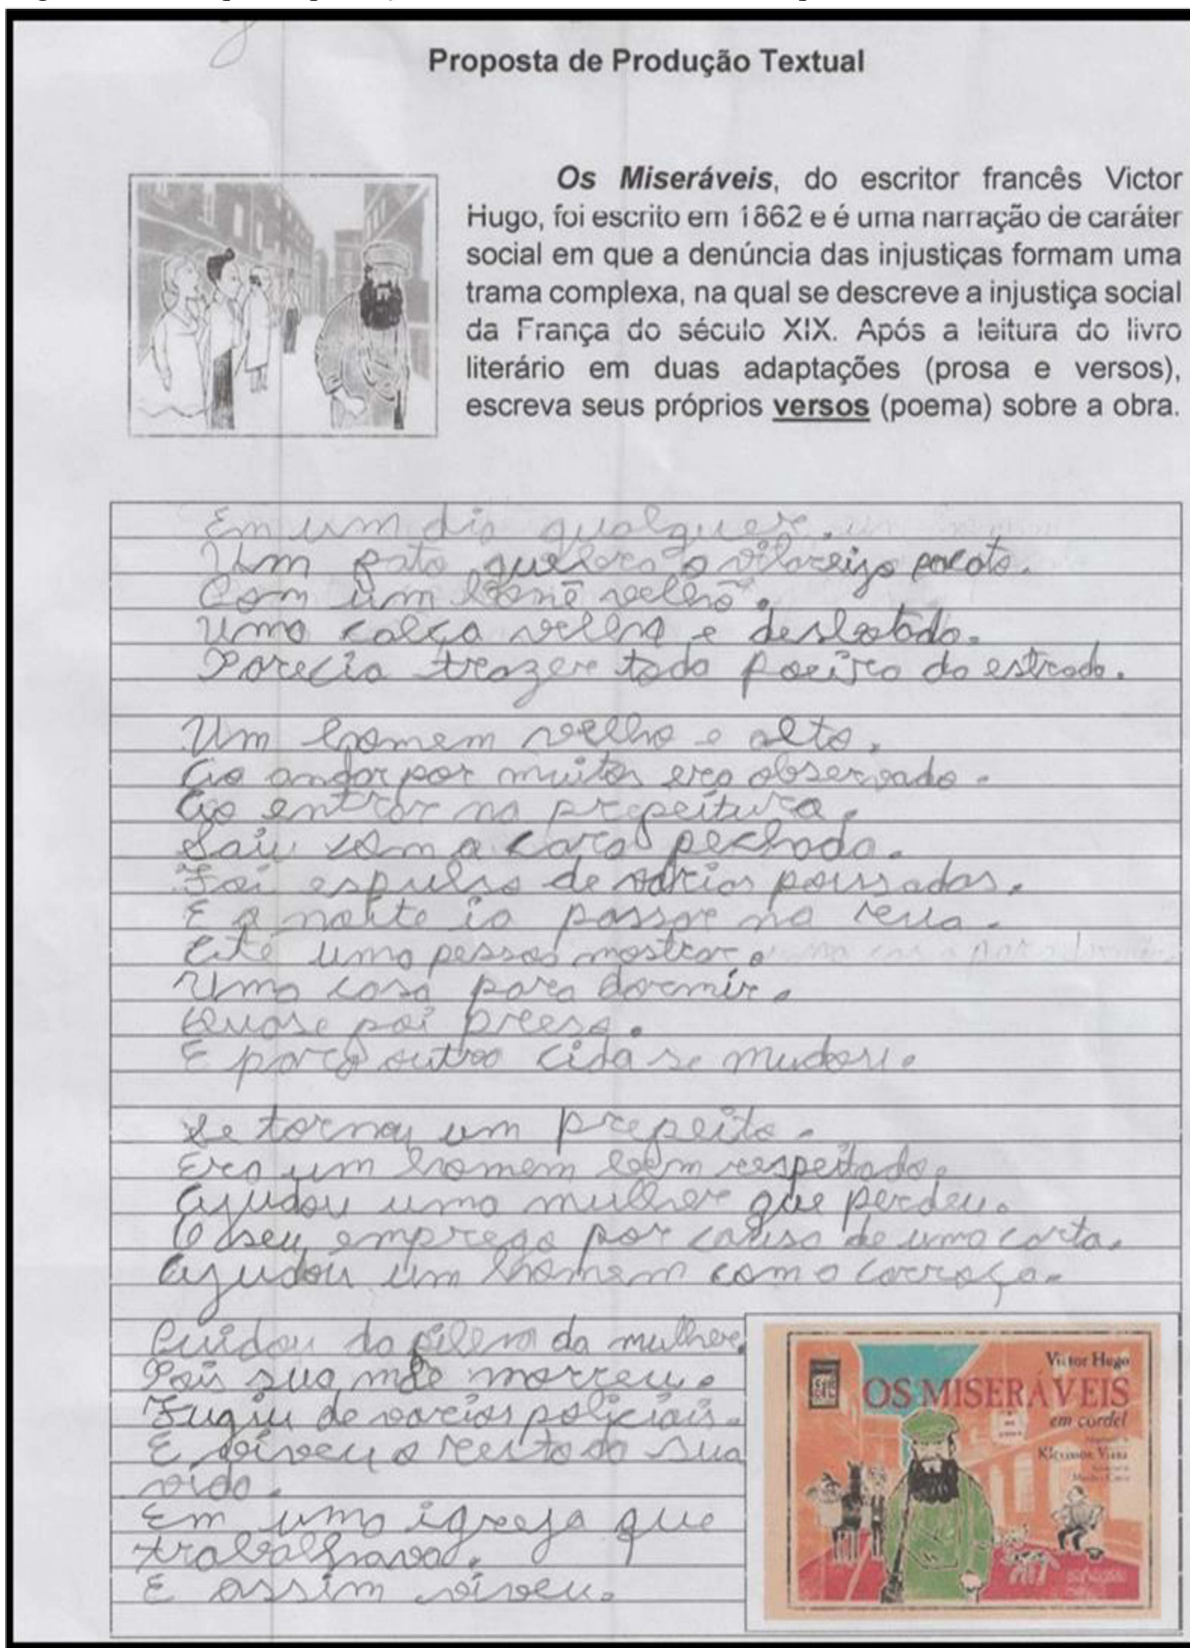 Proposta de Produção Textual
Os Miseráveis, do escritor francês Victor
Hugo, foi escrito em 1862 e é uma narração de caráter
social em que a denúncia das injustiças formam uma
trama complexa, na qual se descreve a injustiça social
da França do século XIX. Após a leitura do livro
literário em duas adaptações (prosa e versos),
escreva seus próprios versos (poema) sobre a obra.
Em um dia qualquer.
Um fato quebra o vilareijo pacato.
Com um bonē velho.
Uma calça velha e desbotada.
Parecia trazer toda poeira da estrada.
Um homem velho e alto.
Ao andar por muitos era observado.
Ao entrar na prefeitura.
Saiu com a cara fechada.
Foi espulso de varias pousadas.
E a noite ia passar na rua.
Até uma pessoa mostrar.
Uma casa para dormir.
Quase foi preso.
E para outra cida se mudou.
Se tornou um prefeito.
Era um homem bem respeitado.
Ajudou uma mulher que perdeu.
O seu emprego por causa de uma carta.
Ajudou um homem com a carroça.
Cuidou da filha da mulher.
Pois sua mãe morreu.
Fugiu de varios policiais.
E viveu o resto da sua
vida.
Em uma igreja que
trabalhava.
E assim viveu.
Victor Hugo
OS MISERÁVEIS
em cordel
Klévisson Viana